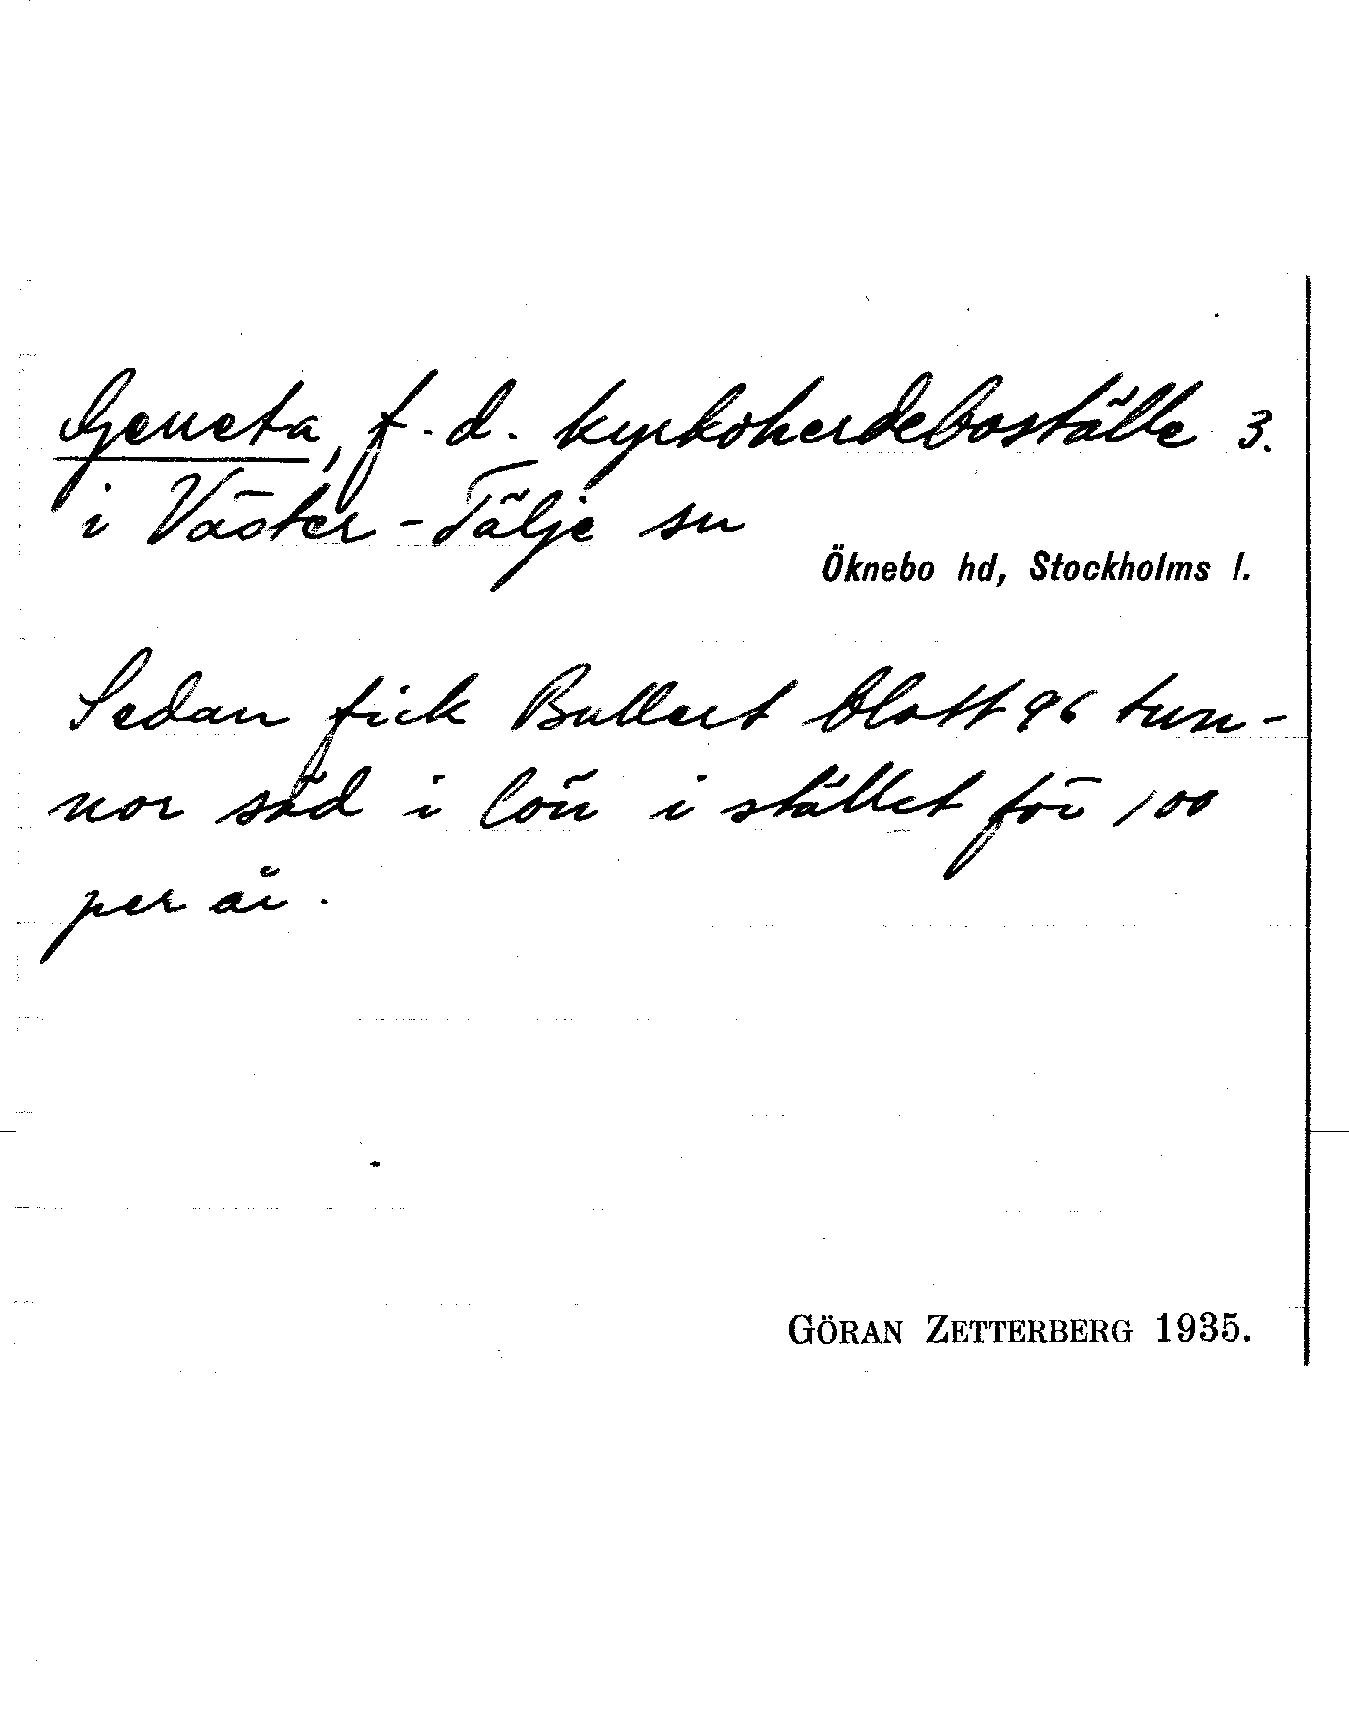 Geneta, f.d. kyrkoherdeboställe 3.
i Väster-Tälje sn
Öknebo hd, Stockholms l.
Sedan fick Bullert blott 96 tun-
nor säd i lön i stället för 100
per år.
GÖRAN ZETTERBERG 1935.